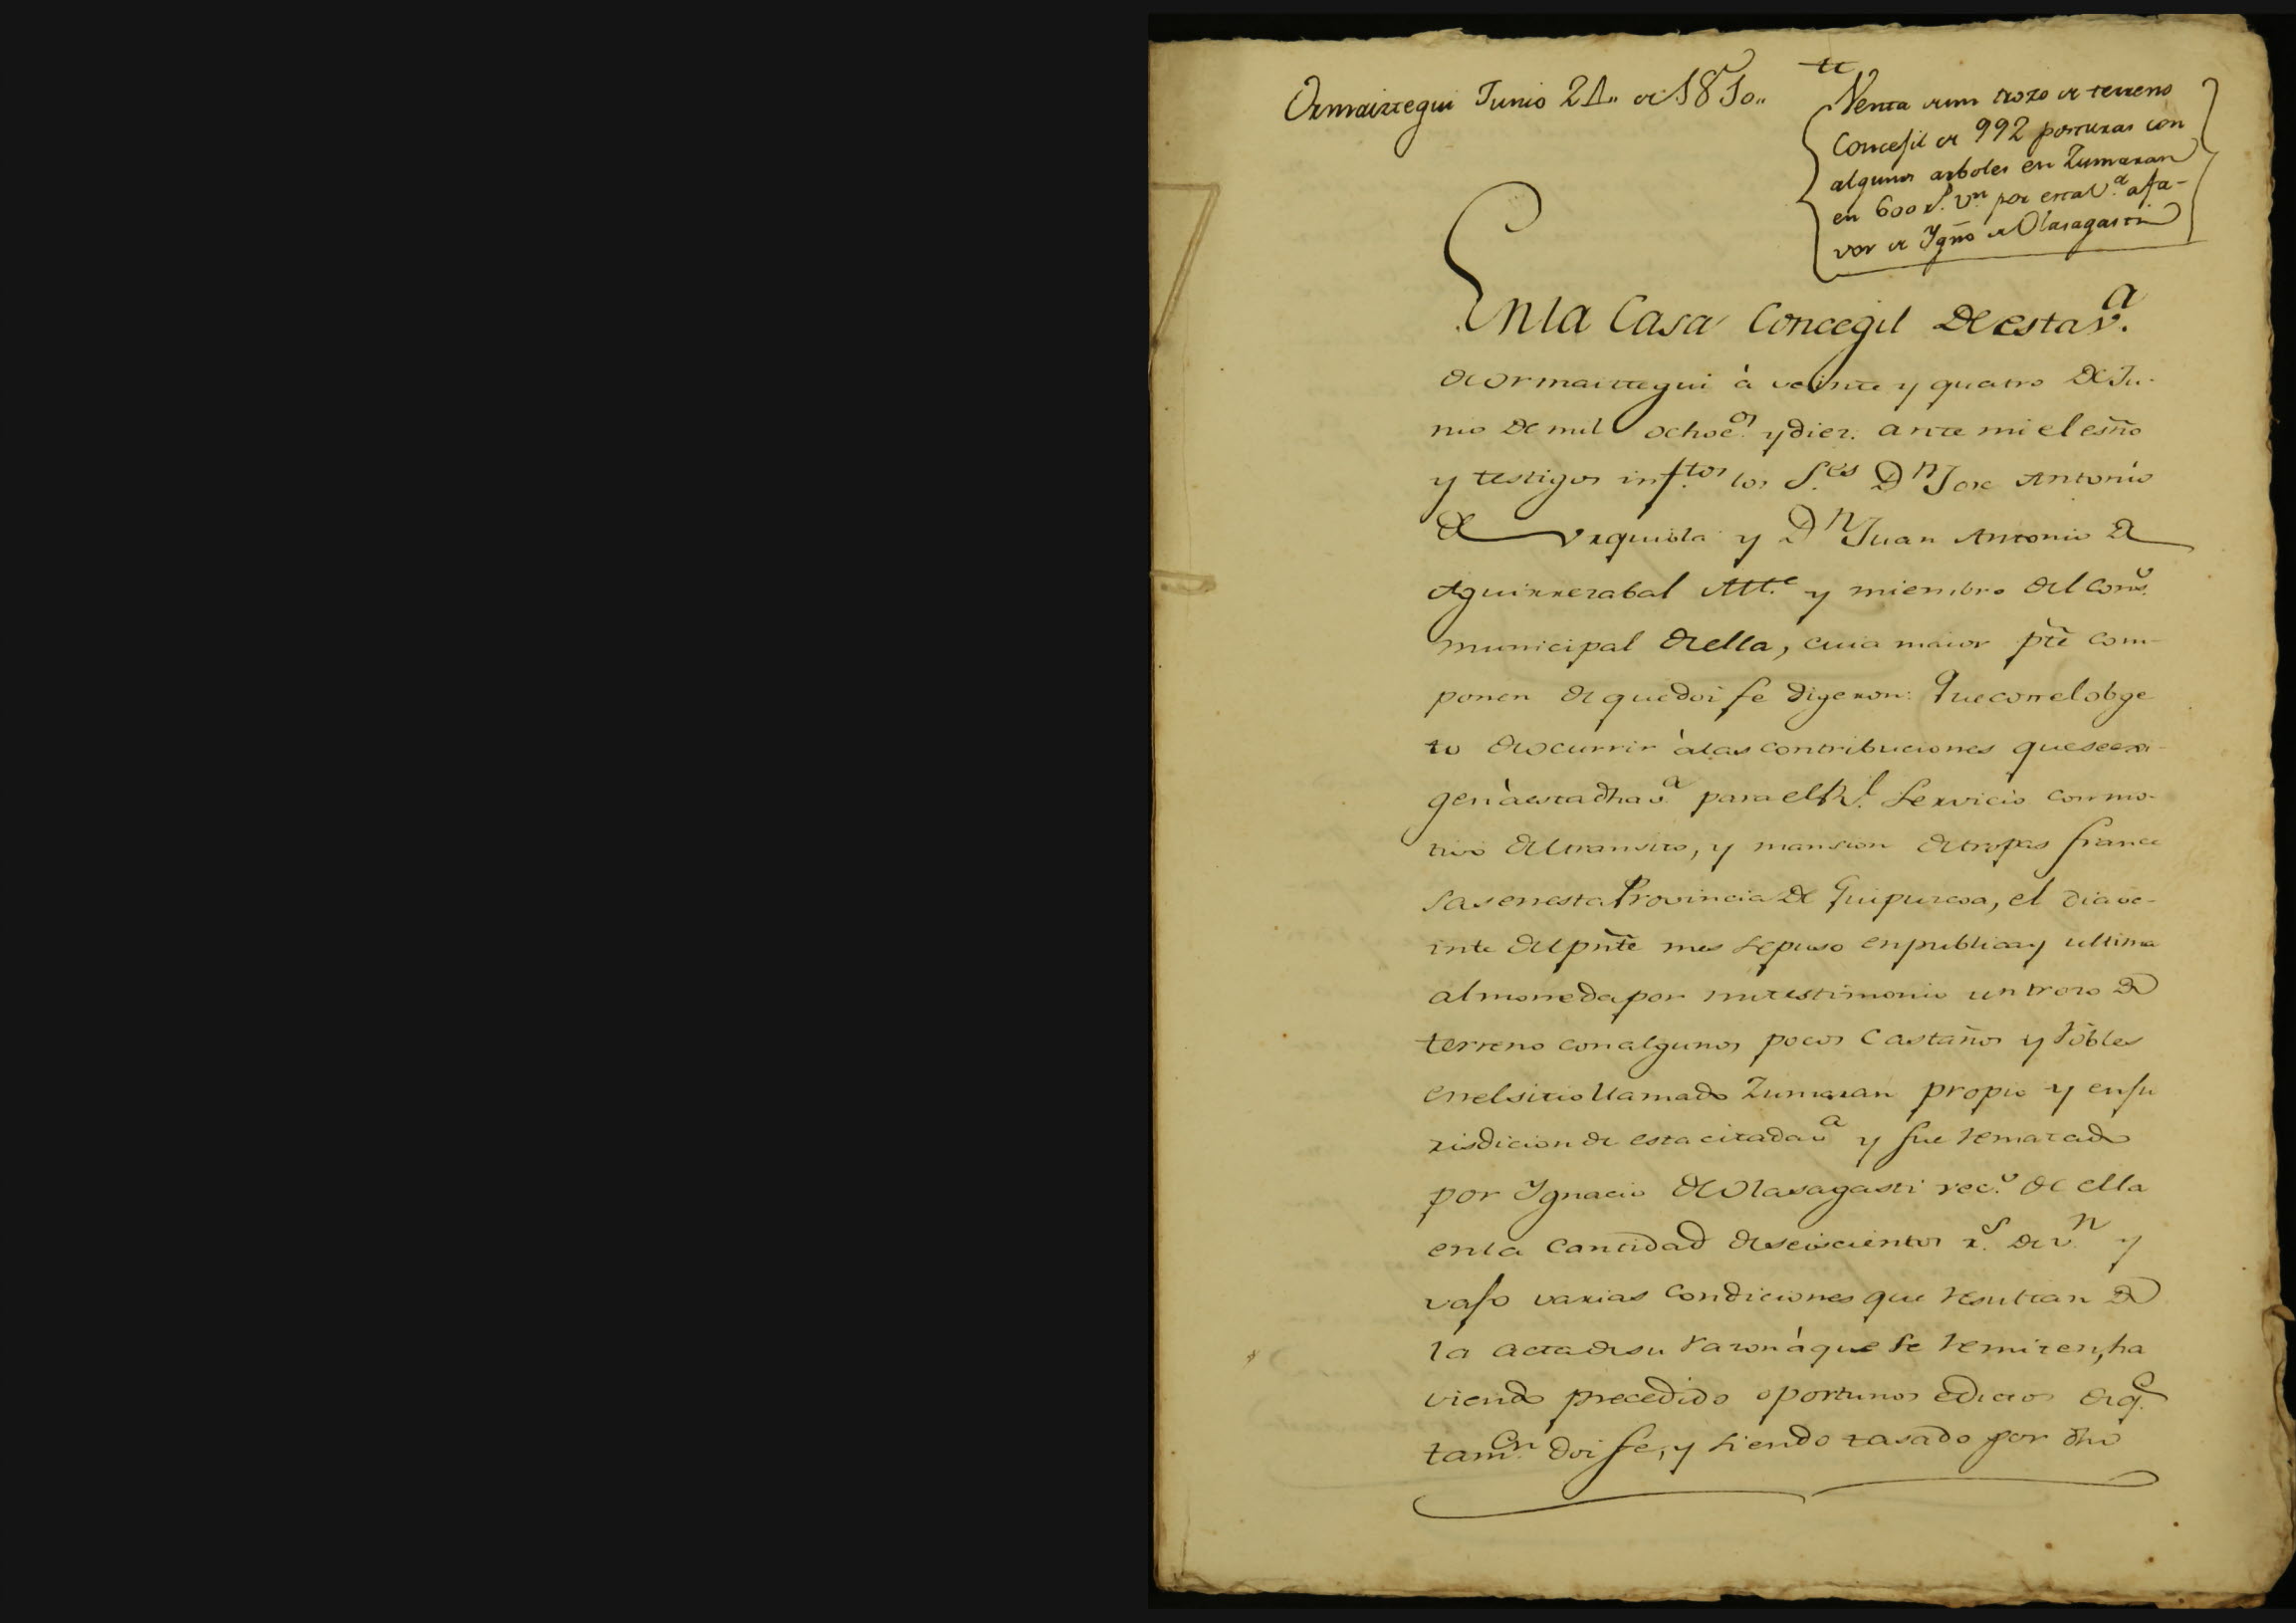 Ormaiztegui Junio 24,, de 1810,,
Venta de un trozo de terreno
Concejil de 992 posturas con
algunos arboles en Zumaran
en 600 r.ˢ v.ⁿ por esta V.ᵃ a fa-
vor de Ygño de Olasagasti
En la Casa Concegil de esta v.ᵃ
de Ormaiztegui à veinte y quatro de Ju-
nio de mil ochoc.ᵒˢ y diez: ante mi el esño
y testigos inf.ᵗᵒˢ los S.ᵉˢ Dⁿ Jose Antonio
de Urquiola y Dⁿ Juan Antonio de
Aguirrezabal Alt.ᵉ y miembro del cons.ᵒ
municipal de ella, cuia maior pte com-
ponen de que doi fe digeron: Que con el obge
to de ocurrir à las contribuciones que se exi-
gen à esta dha v.ᵃ para el R.ˡ Servicio con mo-
tivo del transito, y mansion de tropas france
sas en esta Provincia de Guipuzcoa, el dia ve-
inte del pñte mes se puso en publica y ultima
almoneda por mi testimonio un trozo de
terreno con algunos pocos Castaños y Robles
en el sitio llamado Zumaran propio y en ju
risdicion de esta citada v.ᵃ y fue rematado
por Ygnacio de Olasagasti vec.ᵒ de ella
en la cantidad de seiscientos r.ˢ de v.ⁿ y
vajo varias condiciones que resultan de
la acta de su razon à que se remiten, ha
viendo precedido oportunos edictos de q.ᵉ
tam.ᵉⁿ doi fe, y siendo tasado por dho